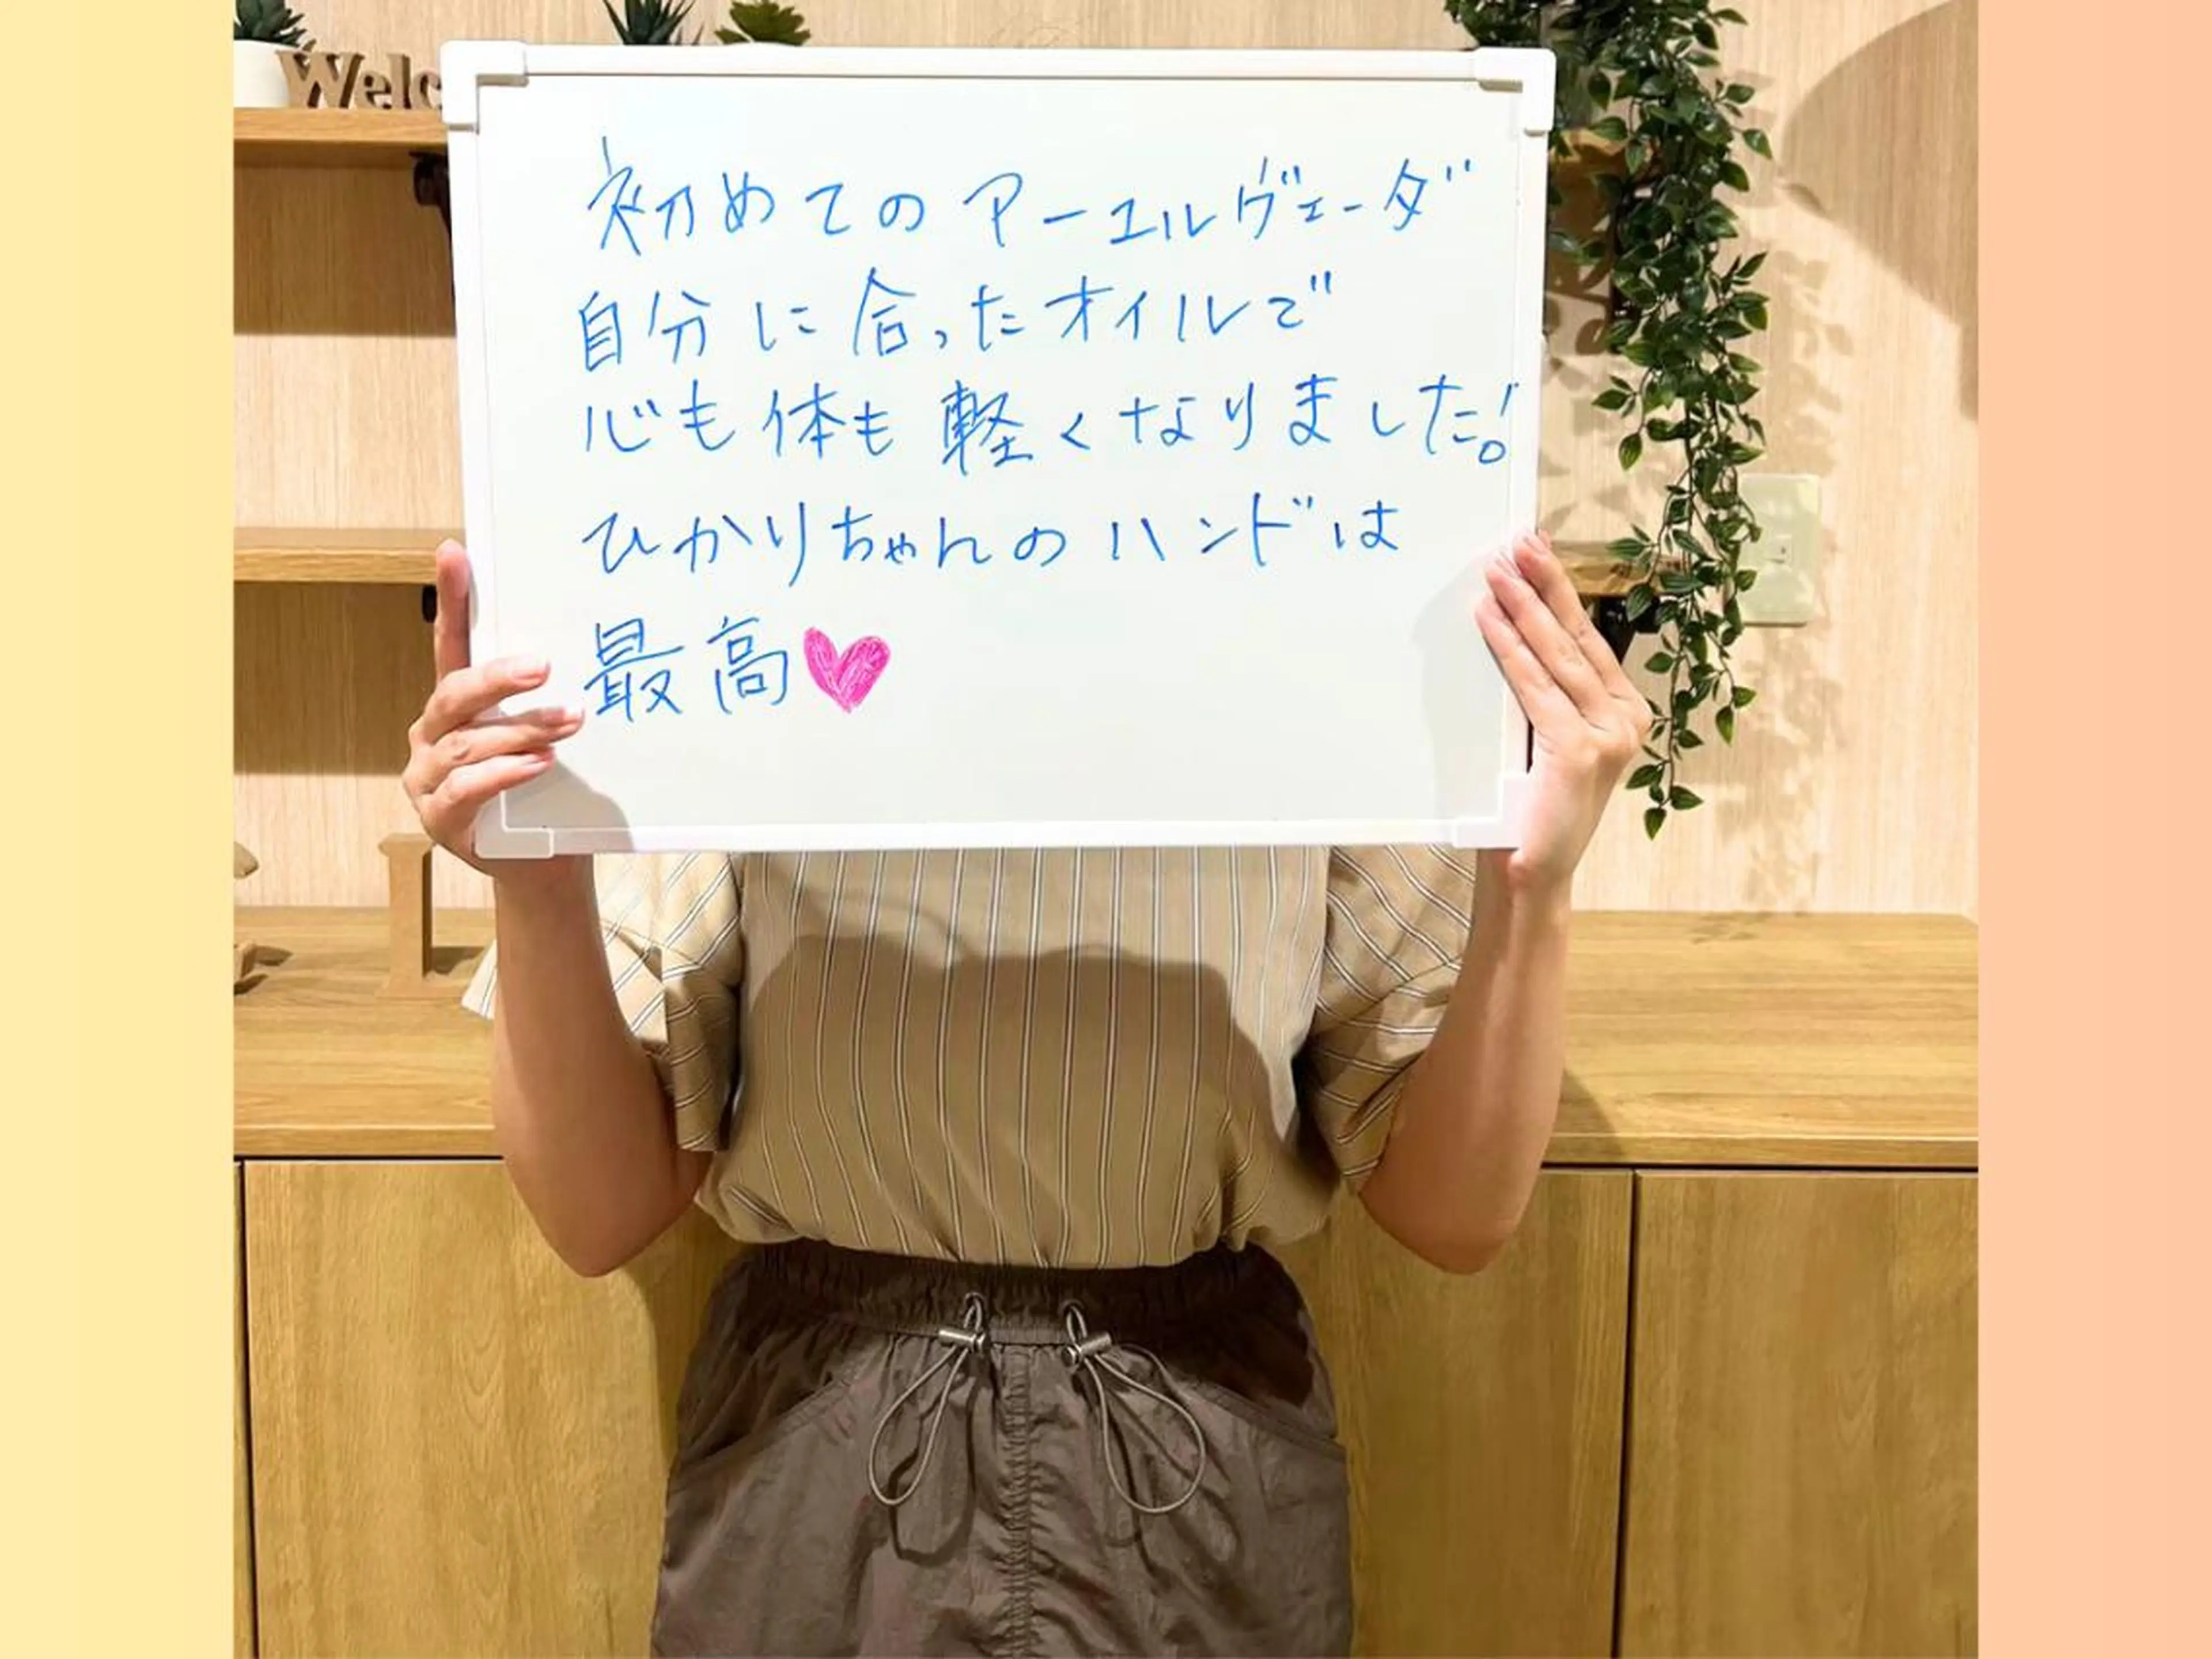 Welc
初めてのアーユルヴェーダ
自分に合ったオイルで
心も体も軽くなりました!
ひかりちゃんのハンドは
最高♥